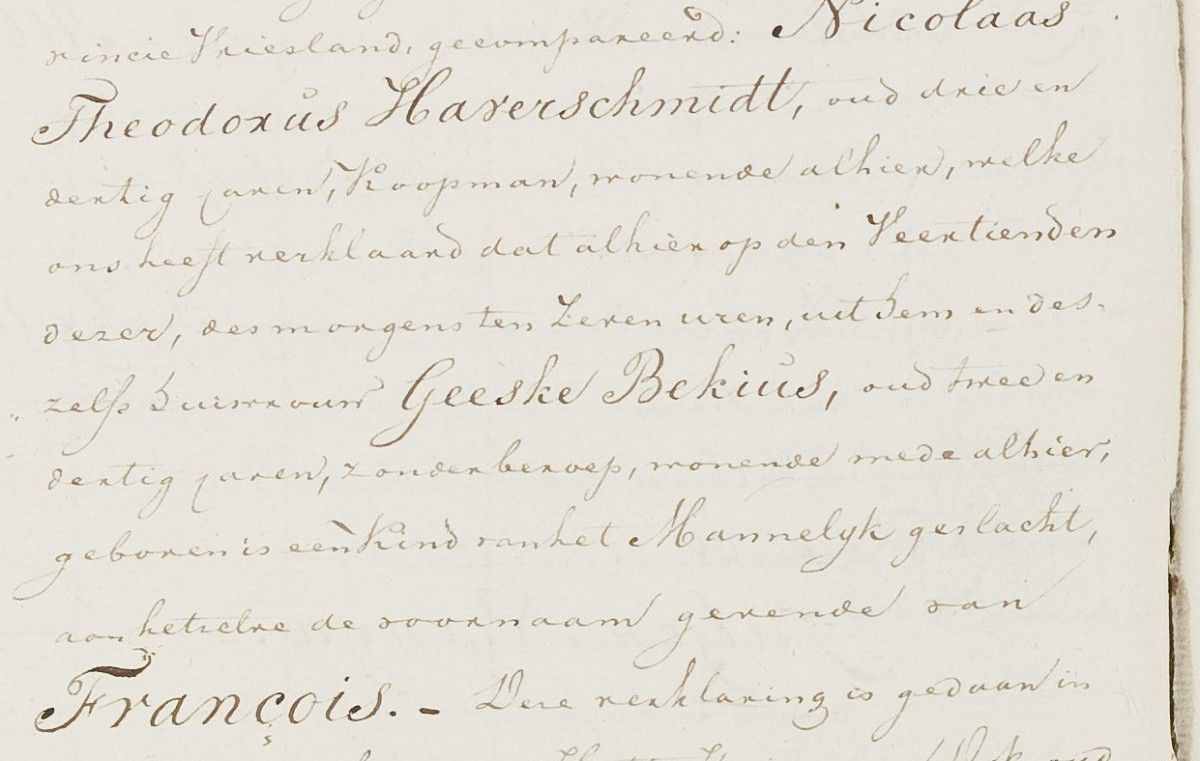 vincie Vriesland, gecompareerd: Nicolaas
Theodorus Haverschmidt, oud drie en
dertig jaren, Koopman, wonende alhier, welke
ons heeft verklaard dat alhier op den Veertienden
dezer, des morgens ten Zeven uren, uit hem en des-
zelfs huisvrouw Geeske Bekius, oud twee en
dertig jaren, zonder beroep, wonende mede alhier,
geboren is een Kind van het Mannelyk geslacht,
aan hetzelve de voornaam gevende van
François. - Deze verklaring is gedaan in